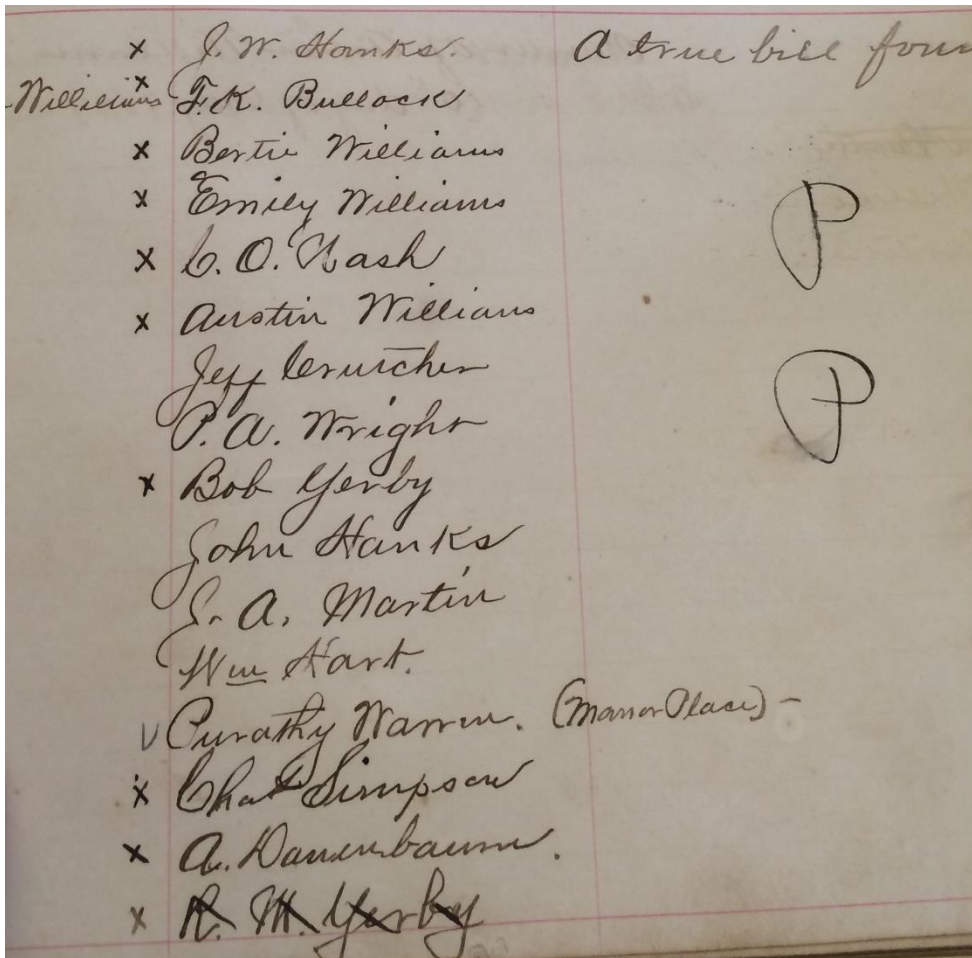 x J. W. Hanks. A true bill foun
Williams x F. K. Bullock
x Bertie Williams
x Emily Williams
P
x C. O. Nash
x Austin Williams
Jeff Crutcher
P
P. A. Wright
x Bob Yerby
John Hanks
J. A. Martin
Wm Hart.
v Warren. (Manor Place) -
x Chat Simpson
x A. Dannenbaum.
x R. M. Yerby